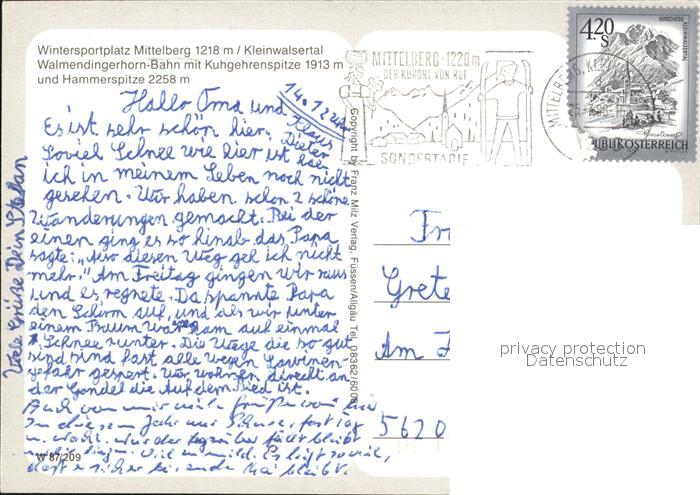 Wintersportplatz Mittelberg 1218 m / Kleinwalsertal
Walmendingerhorn-Bahn mit Kuhgehrenspitze 1913 m
und Hammerspitze 2258 m
4.20
S
REPUBLIK ÖSTERREICH
MITTELBERG · 1220m
DER KURORT VON RUF
MITTELBERG,
SONDERTARIF
Copyright by Franz Milz Verlag, Füssen/Allgäu Tel. 08362/
Hallo Oma und
Klaus
Dieter
Es ist sehr schön hier.
Soviel Schnee wie hier ist hab
ich in meinem Leben noch nicht
gesehen. Wir haben schon 2 schöne
Wanderungen gemacht. Bei der
einen ging es so hinab das Papa
sagte: „Also diesen Weg geh ich nicht
mehr." Am Freitag gingen wir raus
und es regnete. Da spannte Papa
den Schirm auf, und als wir unter
einem Baum waren kam auf einmal
Schnee runter. Die Wege die so gut
sind sind fast alle wegen Lawinen-
gefahr gesperrt. Wir wohnen direkt an
der Gondel die Auf dem Ried ist.
Viele Grüße Dein Stefan
Auch von mir viele Grüße von hier
In diesem Jahr
Fr
Grete
Am
5620
privacy protection
Datenschutz
W 87/209